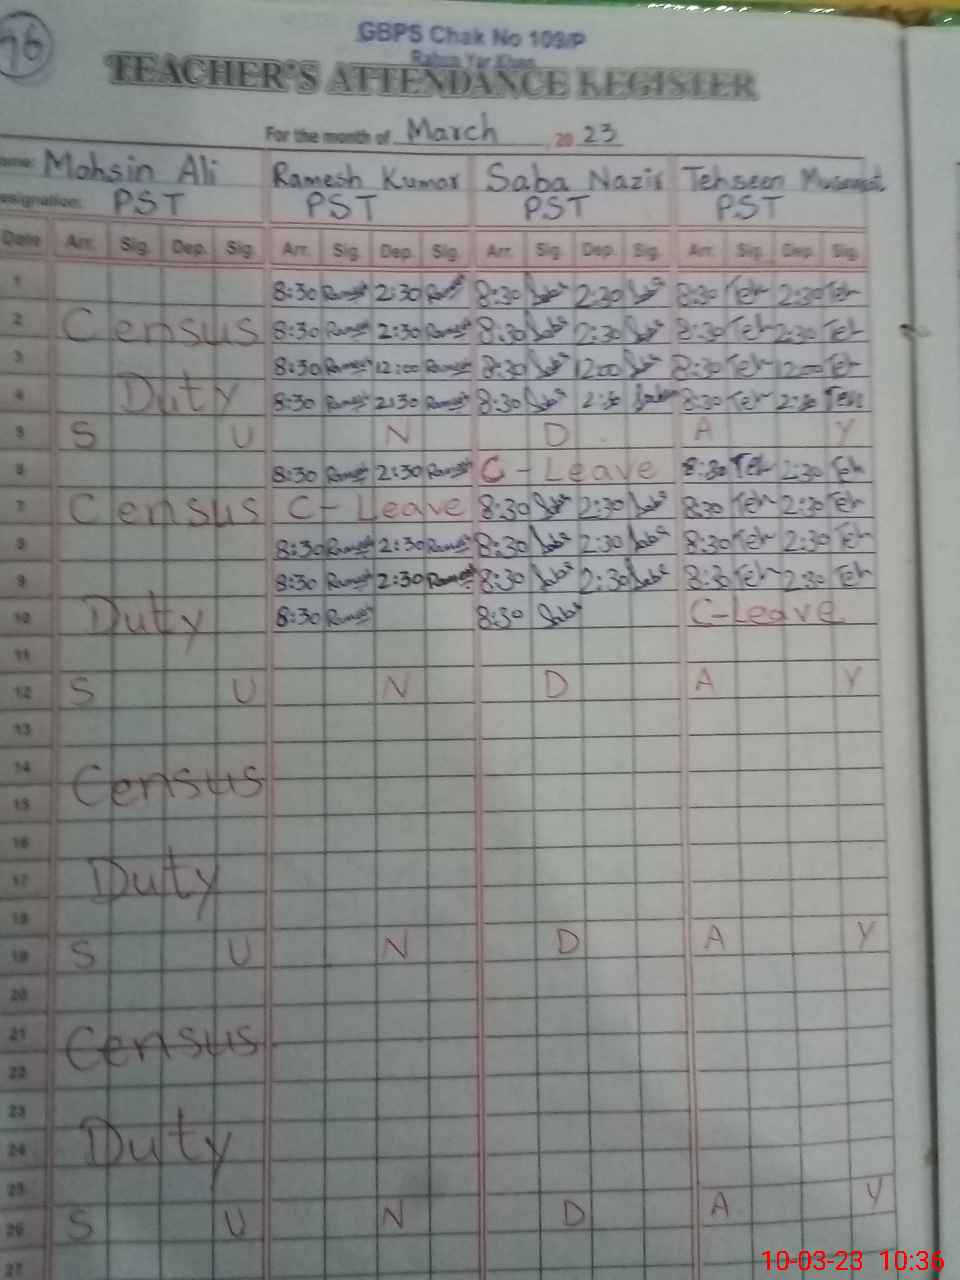 96
GBPS Chak No 109/P
Rahim Yar Khan
TEACHER'S ATTENDANCE REGISTER
For the month of March 2023
Name: Mohsin Ali Ramesh Kumar Saba Nazir Tehseen
Designation: PST PST PST PST
Date Arr. Sig. Dep. Sig. Arr. Sig. Dep. Sig. Arr. Sig. Dep. Sig. Arr. Sig. Dep. Sig.
1 8:30 Ramesh 2:30 Ramesh 8:30 Saba 2:30 Saba 8:30 Teh 2:30 Teh
2 Census 8:30 Ramesh 2:30 Ramesh 8:30 Saba 2:30 Saba 8:30 Teh 2:30 Teh
3 8:30 Ramesh 12:00 Ramesh 8:30 Saba 1200 Saba 8:30 Teh 1200 Teh
4 Duty 8:30 Ramesh 2:30 Ramesh 8:30 Saba 2:30 Saba 8:30 Teh 2:30 Teh
5 S U N D A Y
6 8:30 Ramesh 2:30 Ramesh C-Leave 8:30 Teh 2:30 Teh
7 Census C-Leave 8:30 Saba 2:30 Saba 8:30 Teh 2:30 Teh
8 8:30 Ramesh 2:30 Ramesh 8:30 Saba 2:30 Saba 8:30 Teh 2:30 Teh
9 8:30 Ramesh 2:30 Ramesh 8:30 Saba 2:30 Saba 8:30 Teh 2:30 Teh
10 Duty 8:30 Ramesh 8:30 Saba C-Leave
11
12 S U N D A Y
13
14 Census
15
16
17 Duty
18
19 S U N D A Y
20
21 Census
22
23
24 Duty
25
26 S U N D A Y
27
10-03-23 10:36